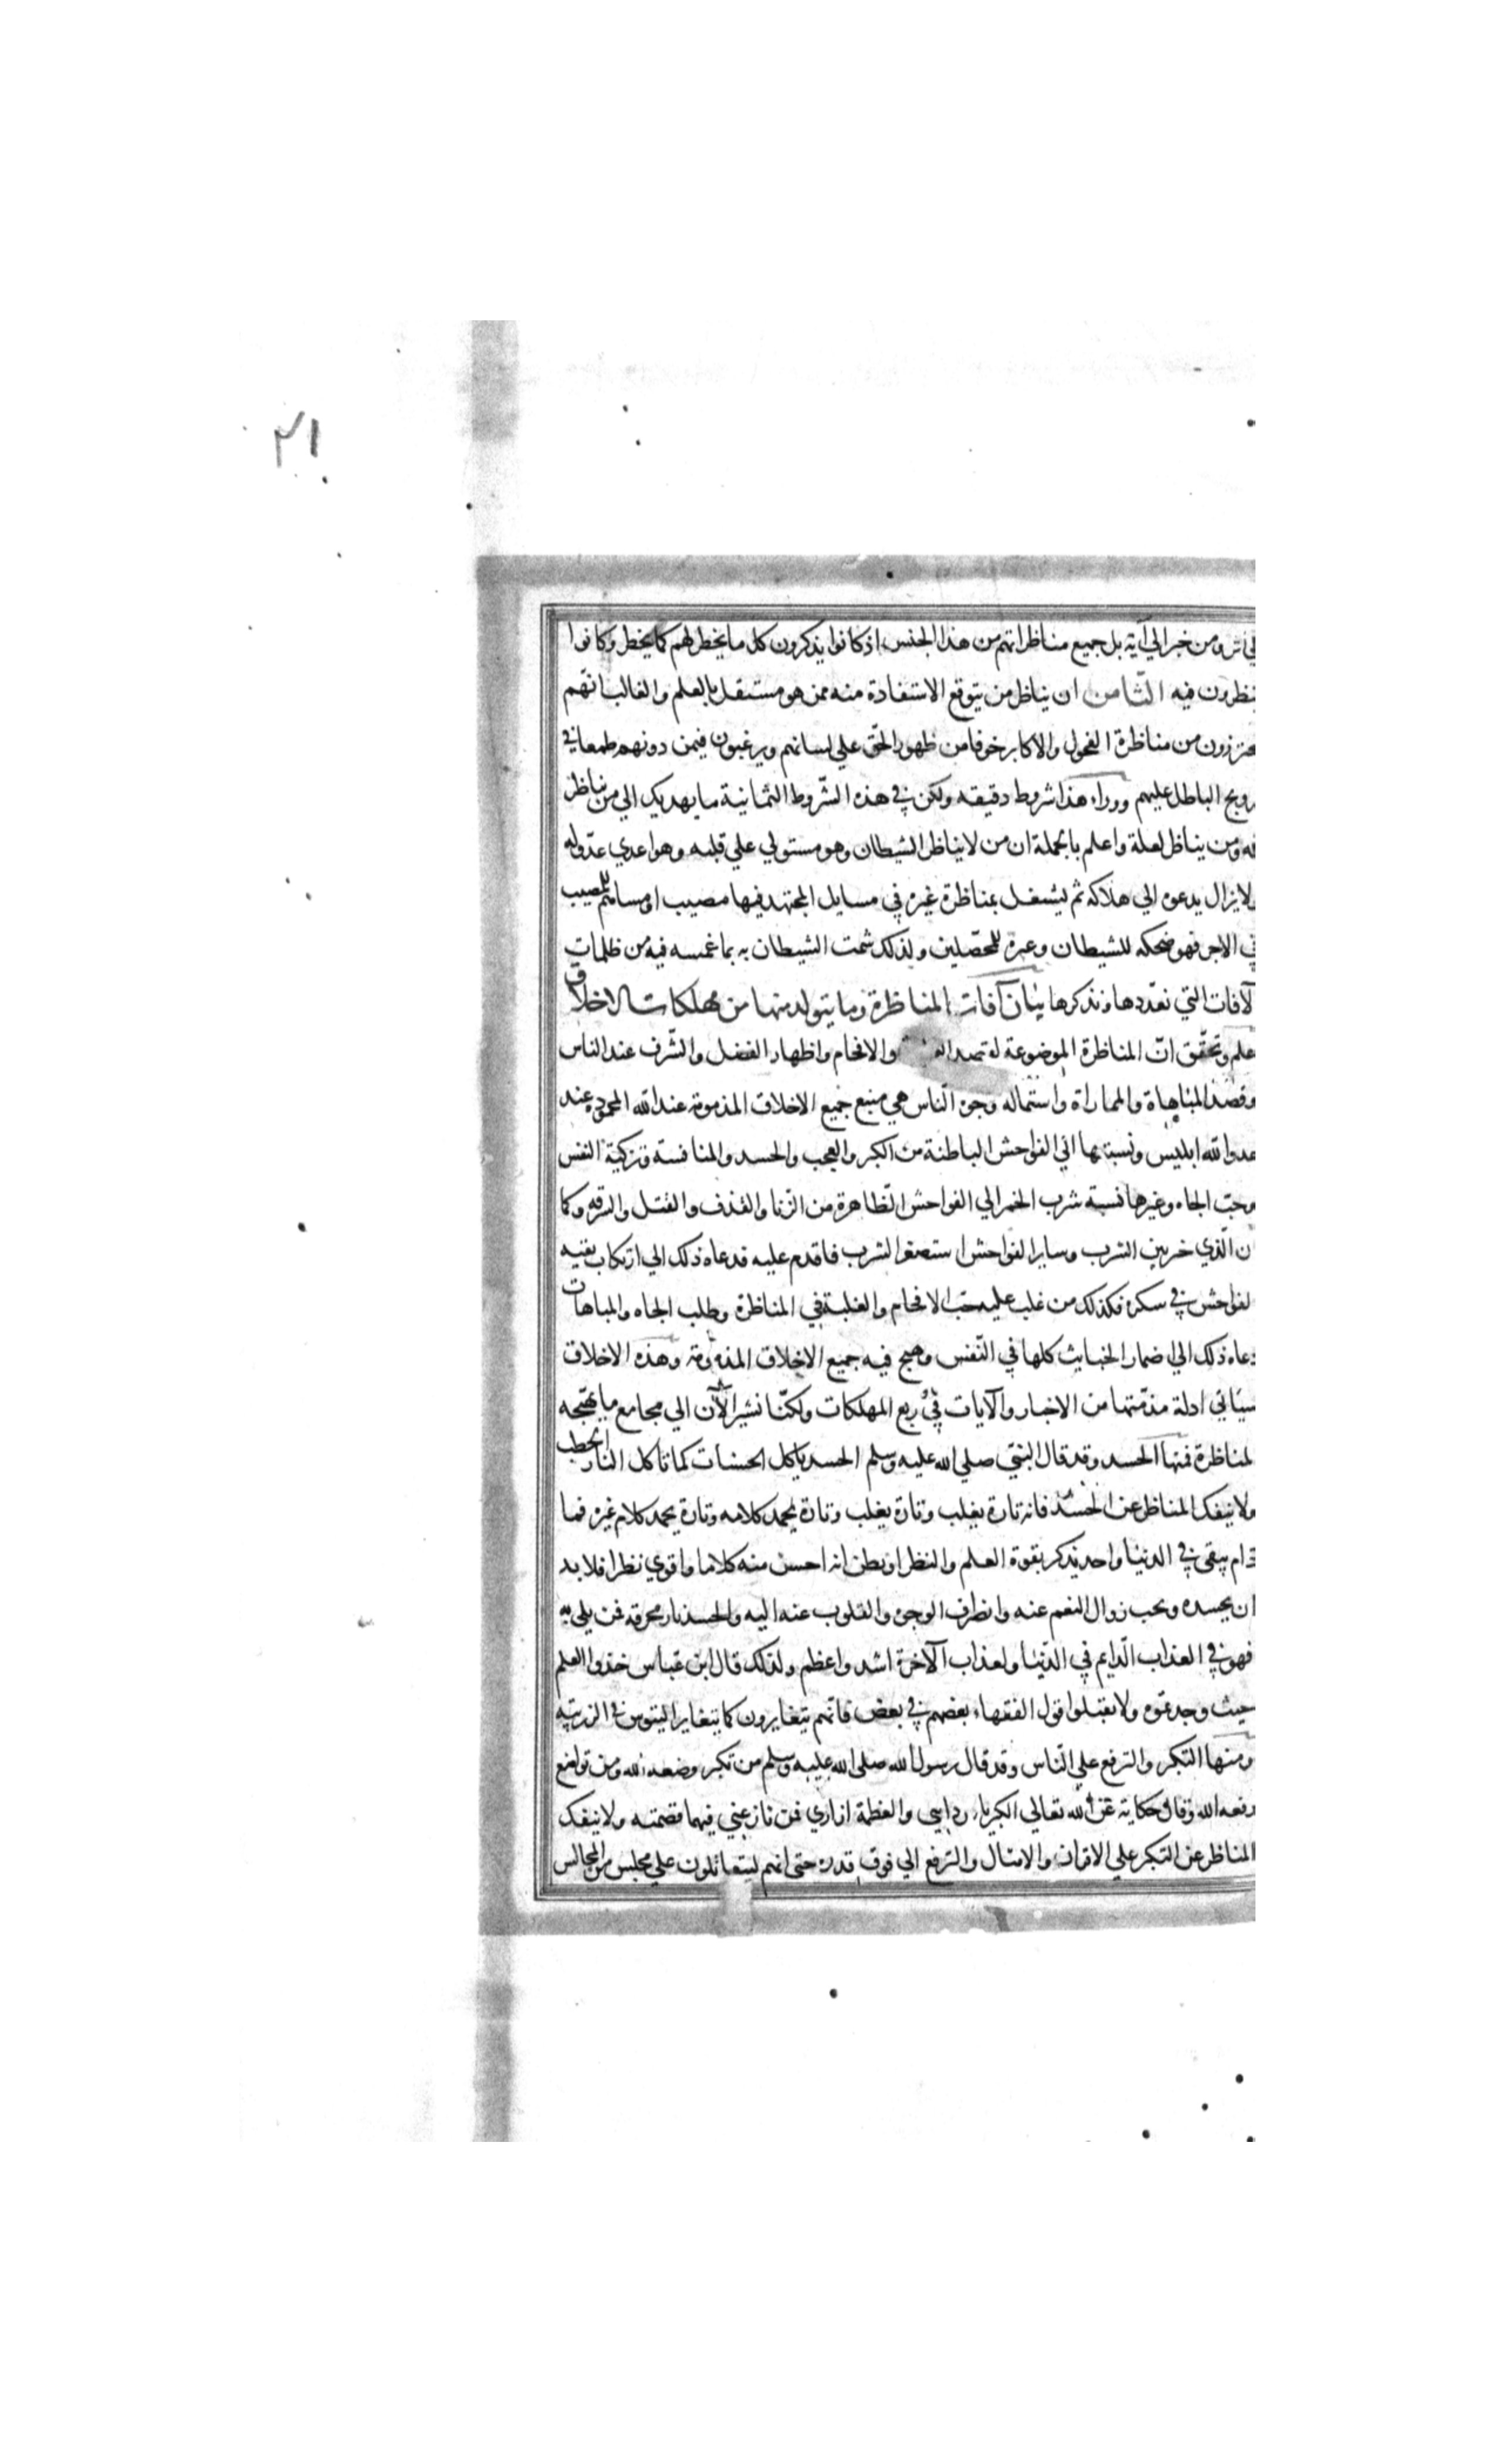 ٢١
ومن خبر الي آية بل جميع مناظراتهم من هذا الجنس اذ كانوا يذكرون كل ما يخطر لهم كما يخطر وكانوا
ينظرون فيه الثامن ان يناظر من يتوقع الاستفادة منه ممن هو مستقل بالعلم والغالب انهم
يحترزون من مناظرة الفحول والاكابر خوفا من ظهور الحق علي لسانهم ويرغبون فيمن دونهم طمعا في
ترويج الباطل عليهم ووراء هذا شروط دقيقه ولكن في هذه الشروط الثمانية ما يهديك الي من يناظر
لله ومن يناظر لعلة واعلم بالجملة ان من لا يناظر الشيطان وهو مستولي علي قلبه وهو اعدي عدو له
ولا يزال يدعوه الي هلاكه ثم يشتغل بمناظرة غيره في مسايل المجتهد فيها مصيب او مساهم للمصيب
في الاجر فهو ضحكه للشيطان وعبرة للمحصلين ولذلك شمت الشيطان به بما غمسه فيه من ظلمات
الآفات التي نعددها ونذكرها بيان آفات المناظرة وما يتولد منها من مهلكات الاخلاق
اعلم وتحقق ان المناظرة الموضوعة لقصد والافحام واظهار الفضل والشرف عند الناس
وقصد المباهاة والمماراة واستماله وجوه الناس هي منبع جميع الاخلاق المذمومة عند الله المحمودة عند
عدو الله ابليس ونسبتها الي الفواحش الباطنة من الكبر والعجب والحسد والمنافسة وتزكية النفس
وحب الجاه وغيرها نسبة شرب الخمر الي الفواحش الظاهرة من الزنا والقذف والقتل والسرقه وكما
ان الذي خير بين الشرب وساير الفواحش استصغر الشرب فاقدم عليه فدعاه ذلك الي ارتكاب بقيه
الفواحش في سكره فكذلك من غلب عليه حب الافحام والغلبة في المناظرة وطلب الجاه والمباهات
دعاه ذلك الي اضمار الخبايث كلها في النفس وهيج فيه جميع الاخلاق المذمومة وهذه الاخلاق
سيأتي ادلة مذمتها من الاخبار والآيات في ربع المهلكات ولكنا نشير الآن الي مجامع ما يهيجه
المناظرة فمنها الحسد وقد قال النبي صلي الله عليه وسلم الحسد ياكل الحسنات كما تاكل النار الحطب
ولا ينفك المناظر عن الحسد فانه تارة يغلب وتارة يغلب وتارة يحمد كلامه وتارة يحمد كلام غيره فما
دام يبقي في الدنيا واحد يذكر بقوة العلم والنظر او يظن انه احسن منه كلاما واقوي نظرا فلا بد
ان يحسده ويحب زوال النعم عنه وانصراف الوجوه والقلوب عنه اليه والحسد نار محرقه فمن بلي به
فهو في العذاب الدايم في الدنيا ولعذاب الآخرة اشد واعظم ولذلك قال ابن عباس خذوا العلم
حيث وجدتموه ولا تقبلوا قول الفقهاء بعضهم في بعض فانهم يتغايرون كما يتغاير التيوس في الزريبه
ومنها التكبر والترفع علي الناس وقد قال رسول الله صلي الله عليه وسلم من تكبر وضعه الله ومن تواضع
رفعه الله وقال حكاية عن الله تعالي الكبرياء ردايي والعظمة ازاري فمن نازعني فيهما قصمته ولا ينفك
المناظر عن التكبر علي الاقران والامثال والترفع الي فوق قدره حتي انهم ليتقاتلون علي مجلس من المجالس